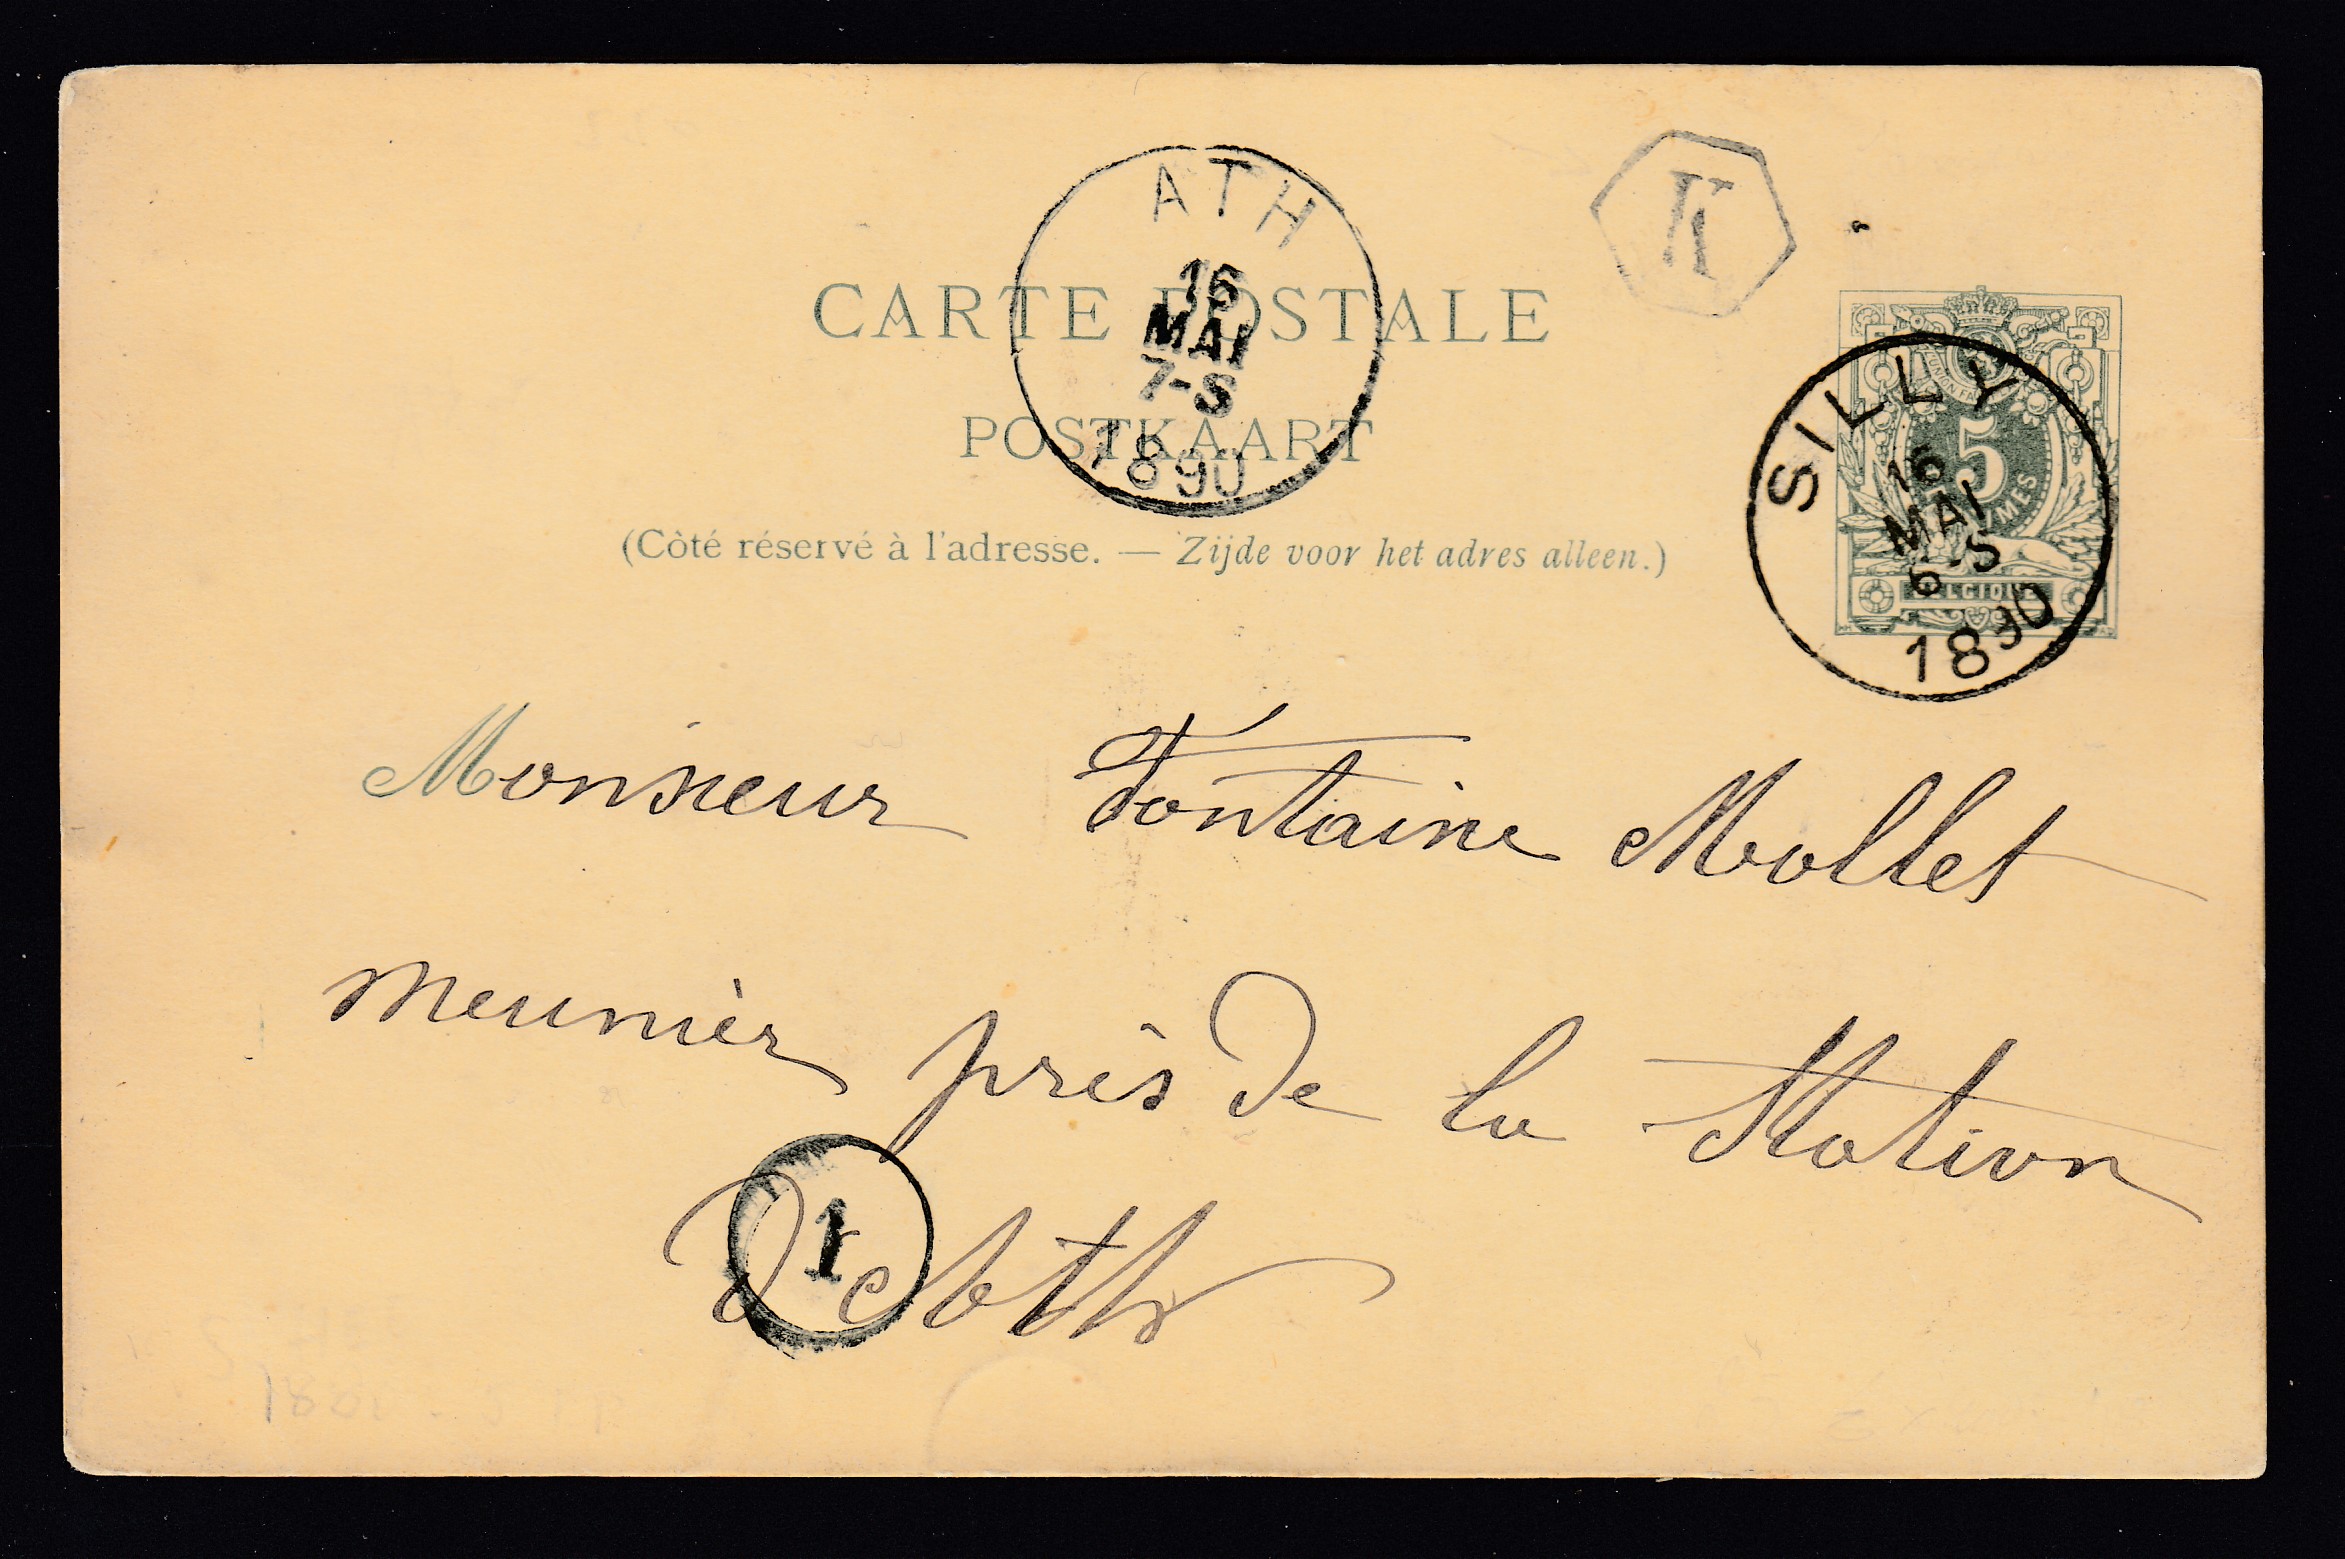 ATH
16
MAI
7-S
1890
CARTE POSTALE
POSTKAART
(Côté réservé à l'adresse. — Zijde voor het adres alleen.)
SILLY
16
MAI
6-S
1890
5
BELGIQUE
Monsieur Fontaine Mollet
meunièr près de la Station
1
d'Ath